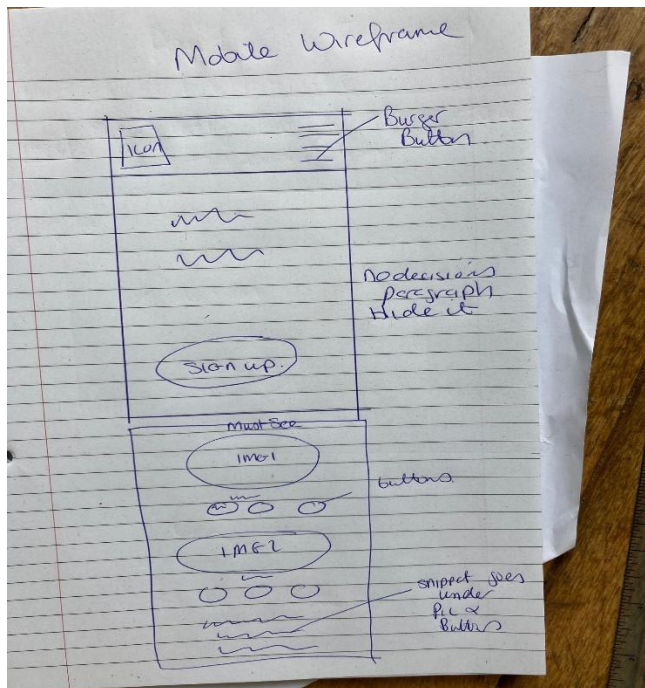 Mobile Wireframe
Icon
Burger
Button
no decisions
paragraph
Hide it
Sign up.
Must See
IMG1
buttons
IMG2
snippet goes
under
Pic &
Buttons